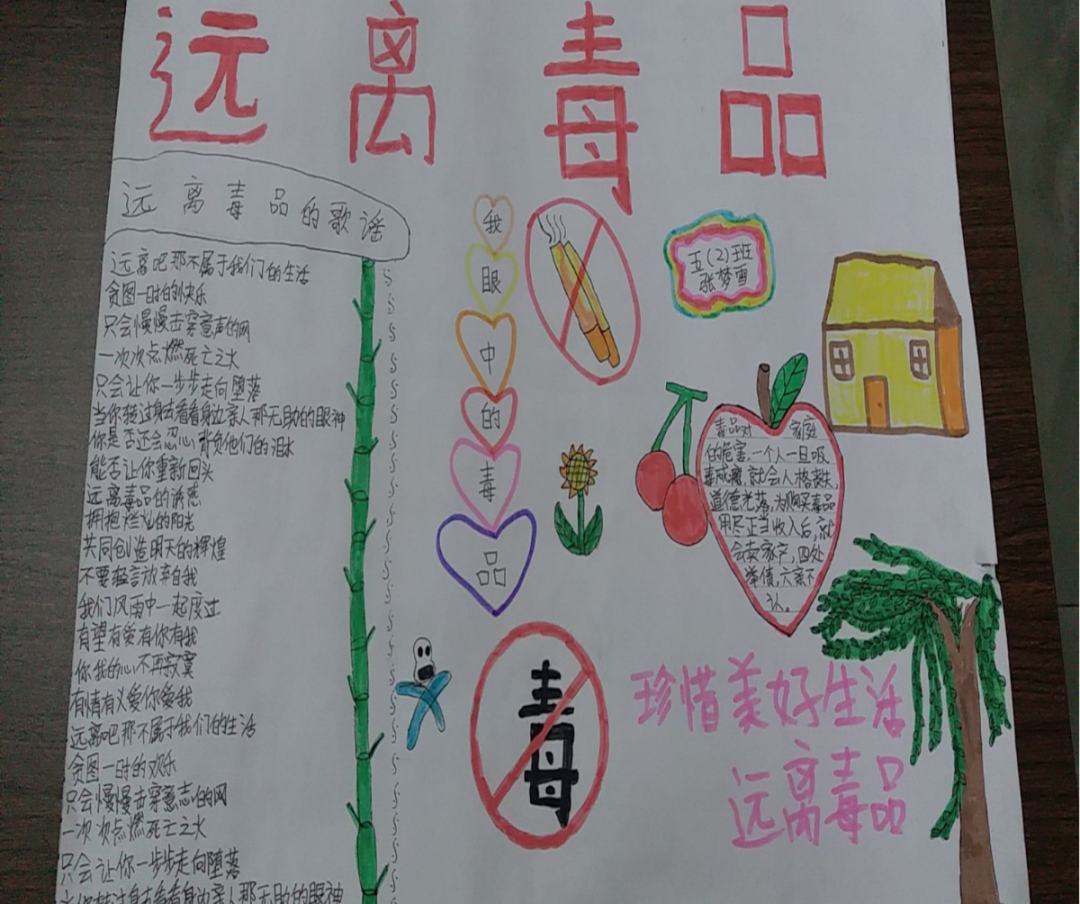 远离毒品
远离毒品的歌谣
远离吧那不属于我们的生活
贪图一时的快乐
只会慢慢击穿意声的网
一次次点燃死亡之火
只会让你一步步走向堕落
当你转过身去看看身边亲人那无助的眼神
你是否还会忍心背负他们的泪水
能否让你重新回头
远离毒品的诱惑
拥抱灿烂的阳光
共同创造明天的辉煌
不要轻言放弃自我
我们风雨中一起度过
有望有爱有你有我
你我的心不再寂寞
有情有义爱你爱我
远离吧那不属于我们的生活
贪图一时的欢乐
只会慢慢击穿意志的网
一次次点燃死亡之火
只会让你一步步走向堕落
当你转过身去看看身边亲人那无助的眼神
我
眼
中
的
毒
品
五(2)班
张梦雪
毒品对 家庭
的危害:一个人一旦吸
毒成瘾,就会人格丧失,
道德沦落,为购买毒品
用尽正当收入后,就
会卖家产,四处
举债,六亲不
认。
毒
珍惜美好生活
远离毒品